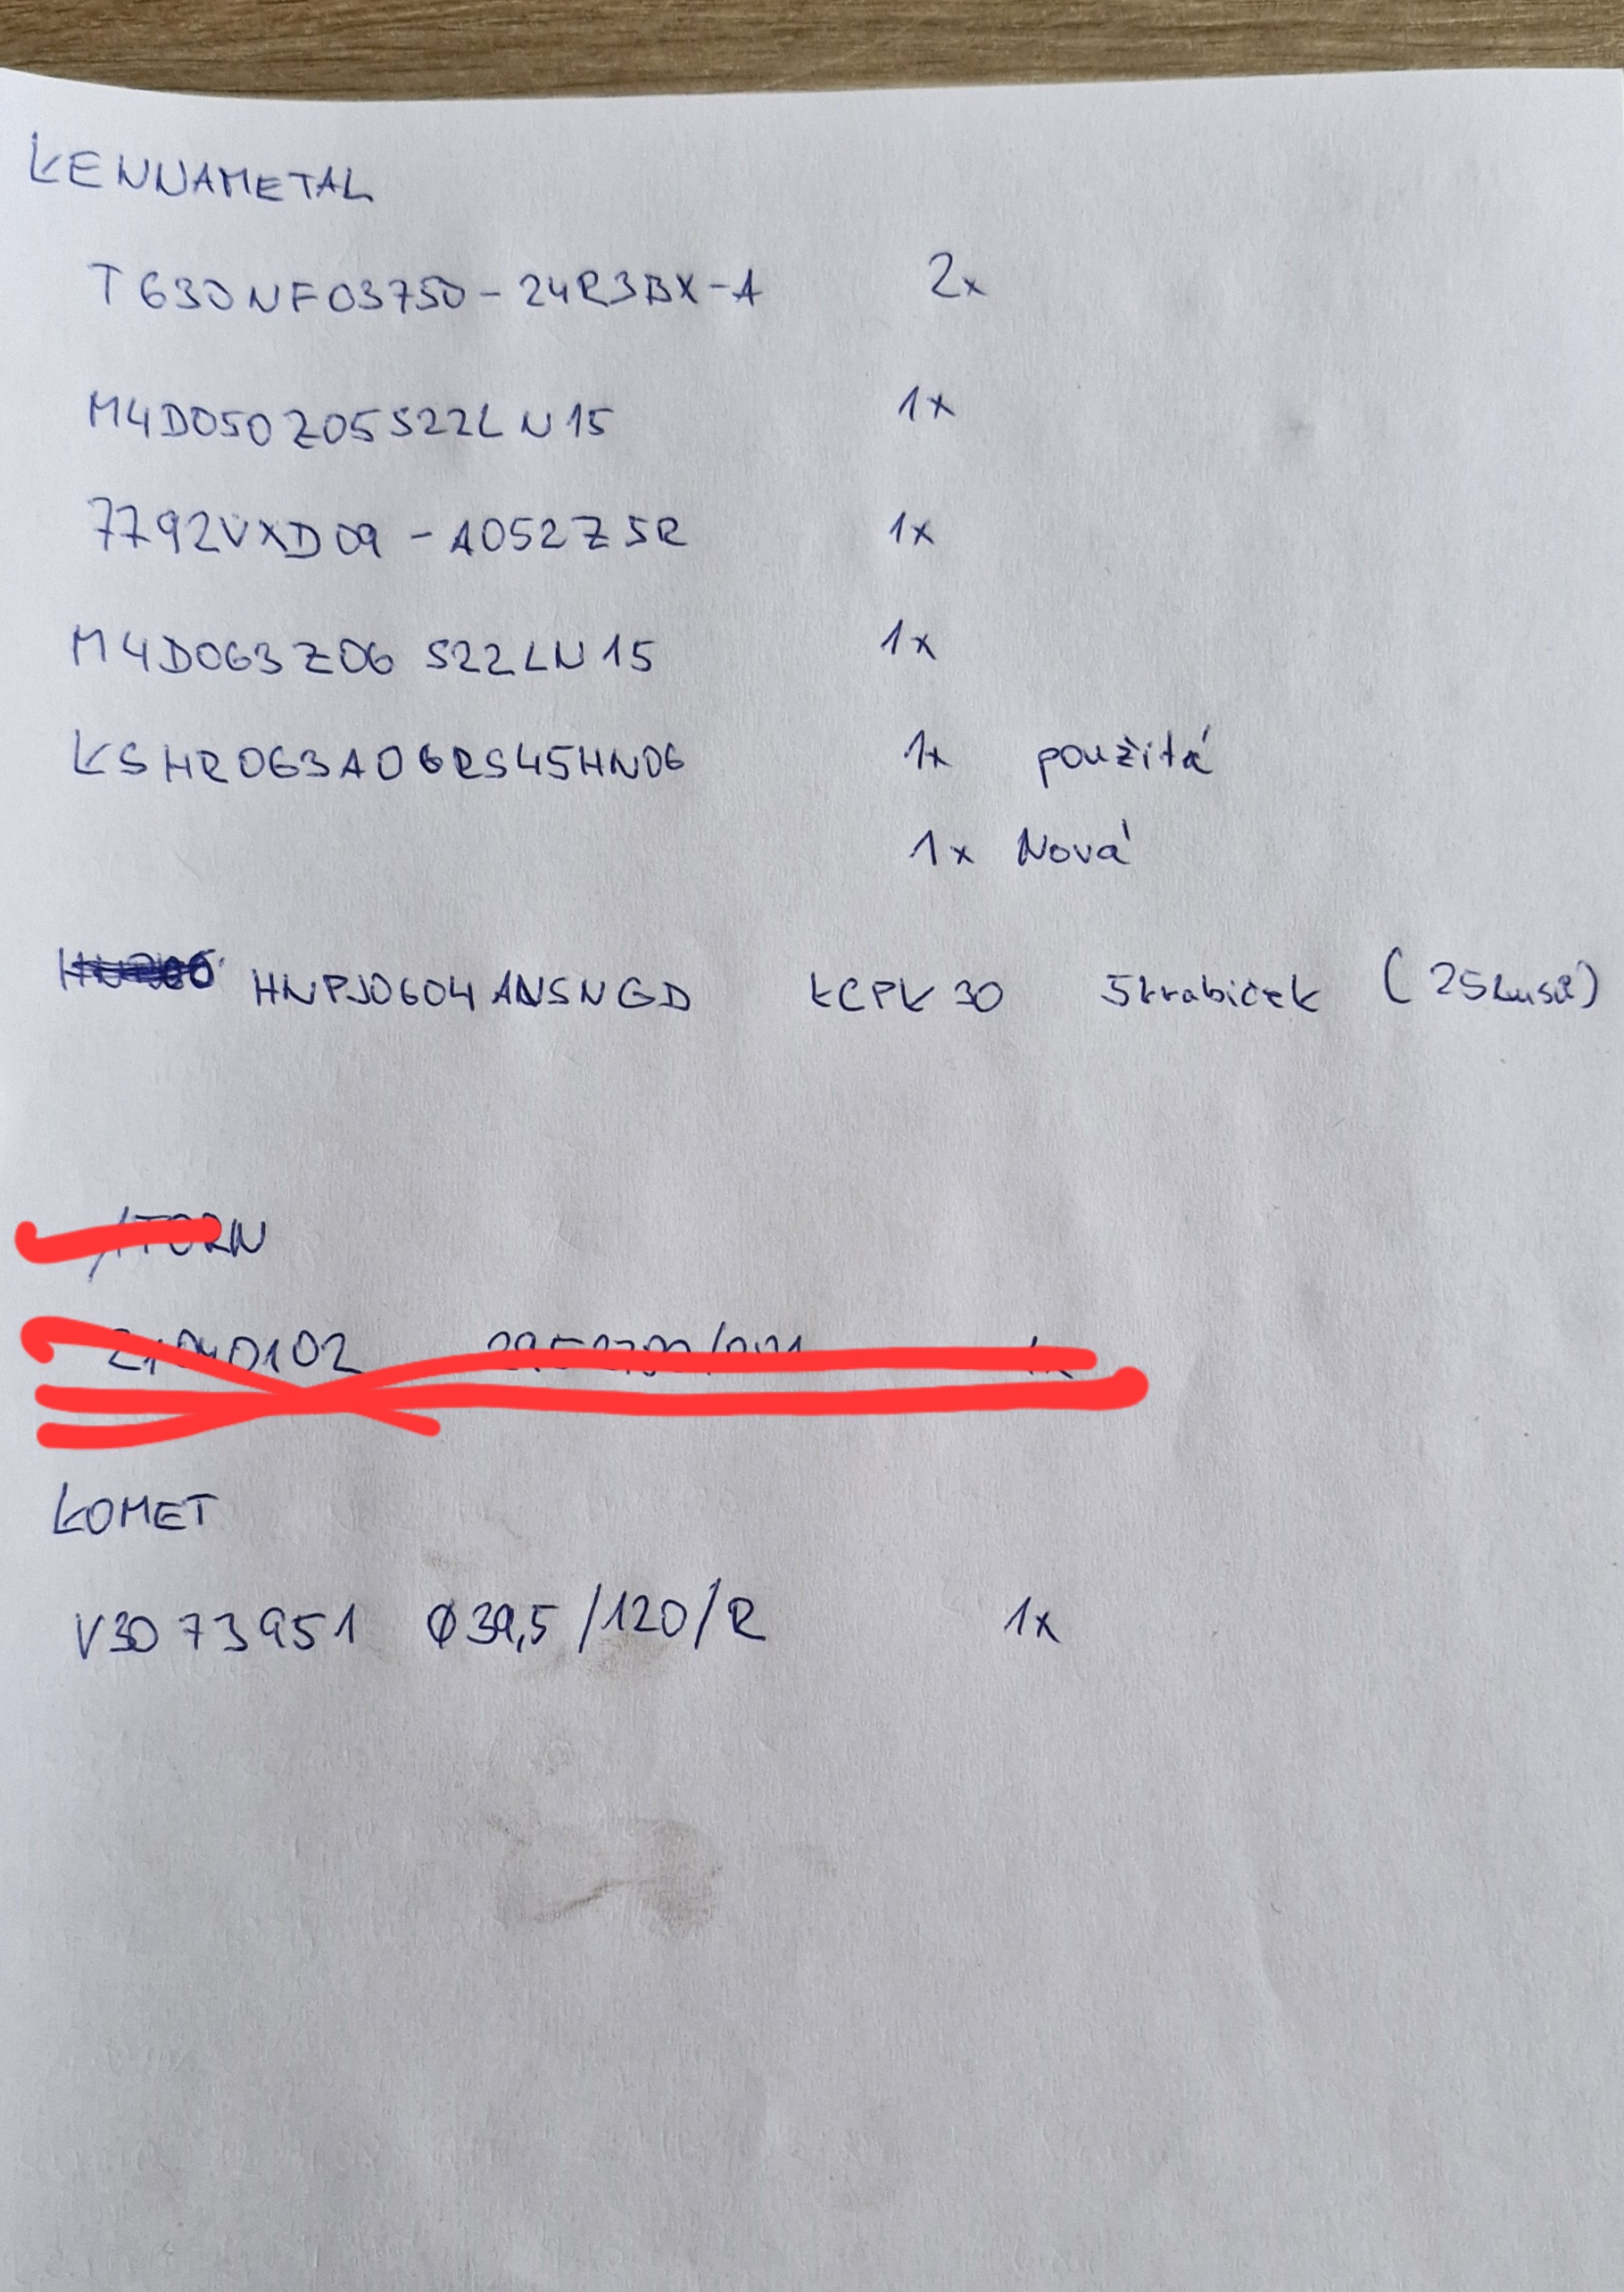 KENNAMETAL
T630NF03750-24R3BX-A 2x
M4D050Z05S22LN15 1x
7792VXD09-A052Z5R 1x
M4D063Z06 S22LN15 1x
KSHR063A06RS45HN06 1x použitá
1x Nová
HNPJ0604ANSNGD KCPK30 5krabiček (25kusů)
ITORN
21040102 1x
KOMET
V30 73951 Ø39,5/120/R 1x